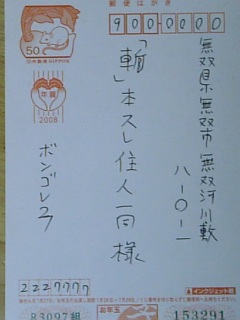 郵便はがき
50
日本郵便 NIPPON
年賀
2008
900-0000
無双県無双市無双河川敷
八一〇一一
「輪」本スレ住人一同 様
ボンゴレ子
222 7777
インクジェット紙
お年玉
83097組
153291